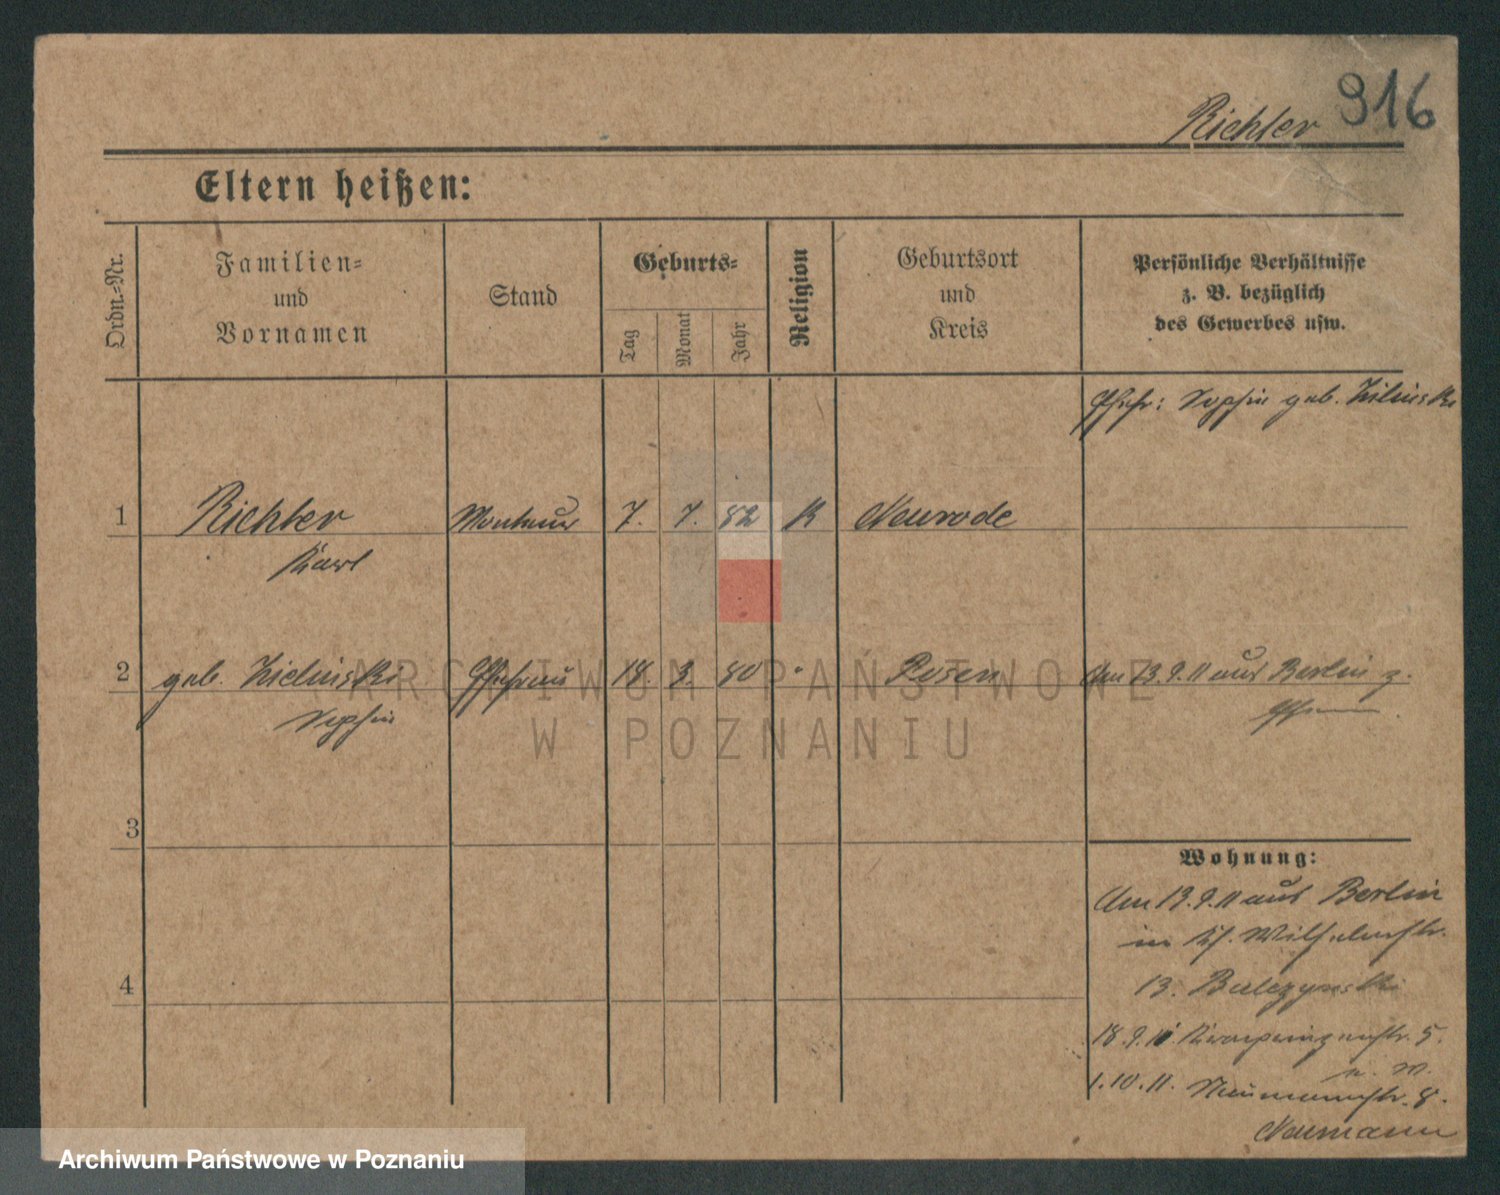 916
Richter
Eltern heißen:
Ordn.-Nr.
Familien-
und
Vornamen
Stand
Geburts-
Tag
Monat
Jahr
Religion
Geburtsort
und
Kreis
Persönliche Verhältnisse
z. B. bezüglich
des Gewerbes usw.
Ehefr: Sophie geb. Zielinski
1 Richter Monteur 7. 7. 82 K Neurode
Karl
2 geb. Zielinski Ehefrau 18. 3. 80 " Posen Am 13.9.11 aus Berlin z.
Sophie
3
Wohnung:
Am 13.9.11 aus Berlin
in Wilhelmstr.
13.
4
18.9.11 Kronprinzenstr. 5.
1.10.11. Naumannstr. 8.
Naumann
ARCHIWUM PAŃSTWOWE
W POZNANIU
Archiwum Państwowe w Poznaniu